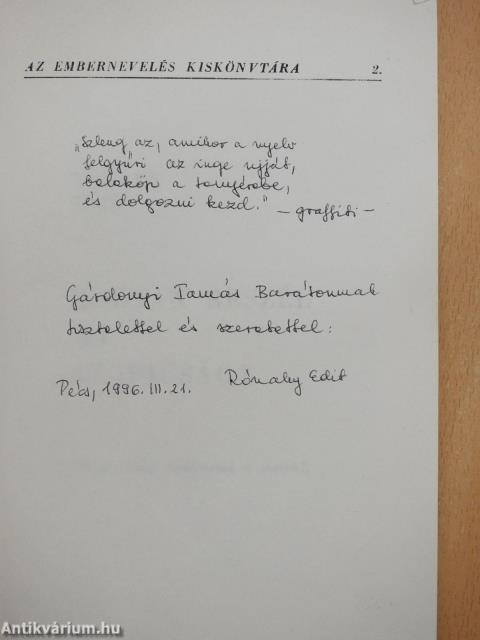 AZ EMBERNEVELÉS KISKÖNYVTÁRA 2.
„Szleng az, amikor a nyelv
felgyűri az inge ujját,
beleköp a tenyerébe,
és dolgozni kezd."
– graffiti –
Gárdonyi Tamás Barátomnak
tisztelettel és szeretettel:
Pécs, 1996. III. 21. Rónaky Edit
Antikvárium.hu